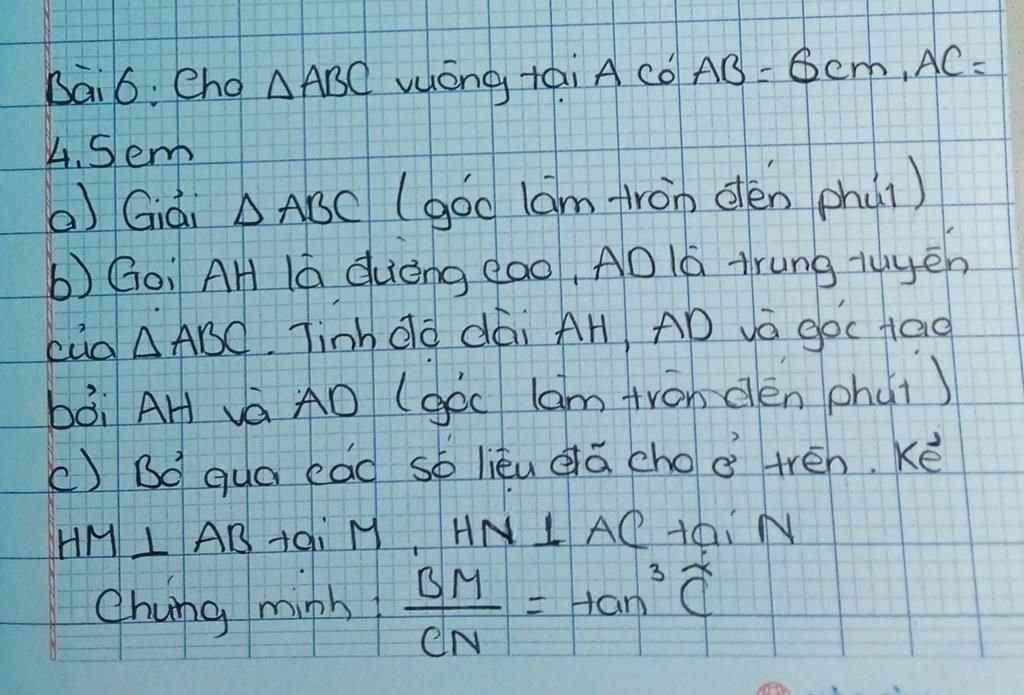 Bài 6: Cho Δ ABC vuông tại A có AB = 6cm, AC =
4.5 cm
a) Giải Δ ABC (góc làm tròn đến phút)
b) Gọi AH là đường cao, AD là trung tuyến
của Δ ABC. Tính độ dài AH, AD và góc tạo
bởi AH và AD (góc làm tròn đến phút)
c) Bỏ qua các số liệu đã cho ở trên. Kẻ
HM ⊥ AB tại M, HN ⊥ AC tại N
Chứng minh: BM/CN = tan³ Ĉ